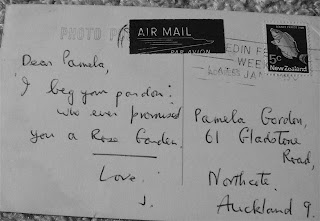 PHOTO
AIR MAIL
PAR AVION
EDIN
WEE
JAN
5c
New Zealand
Dear Pamela,
I beg your pardon:
who ever promised
you a Rose Garden.
Love.
J.
Pamela Gordon,
61 Gladstone
Road,
Northcote.
Auckland 9.